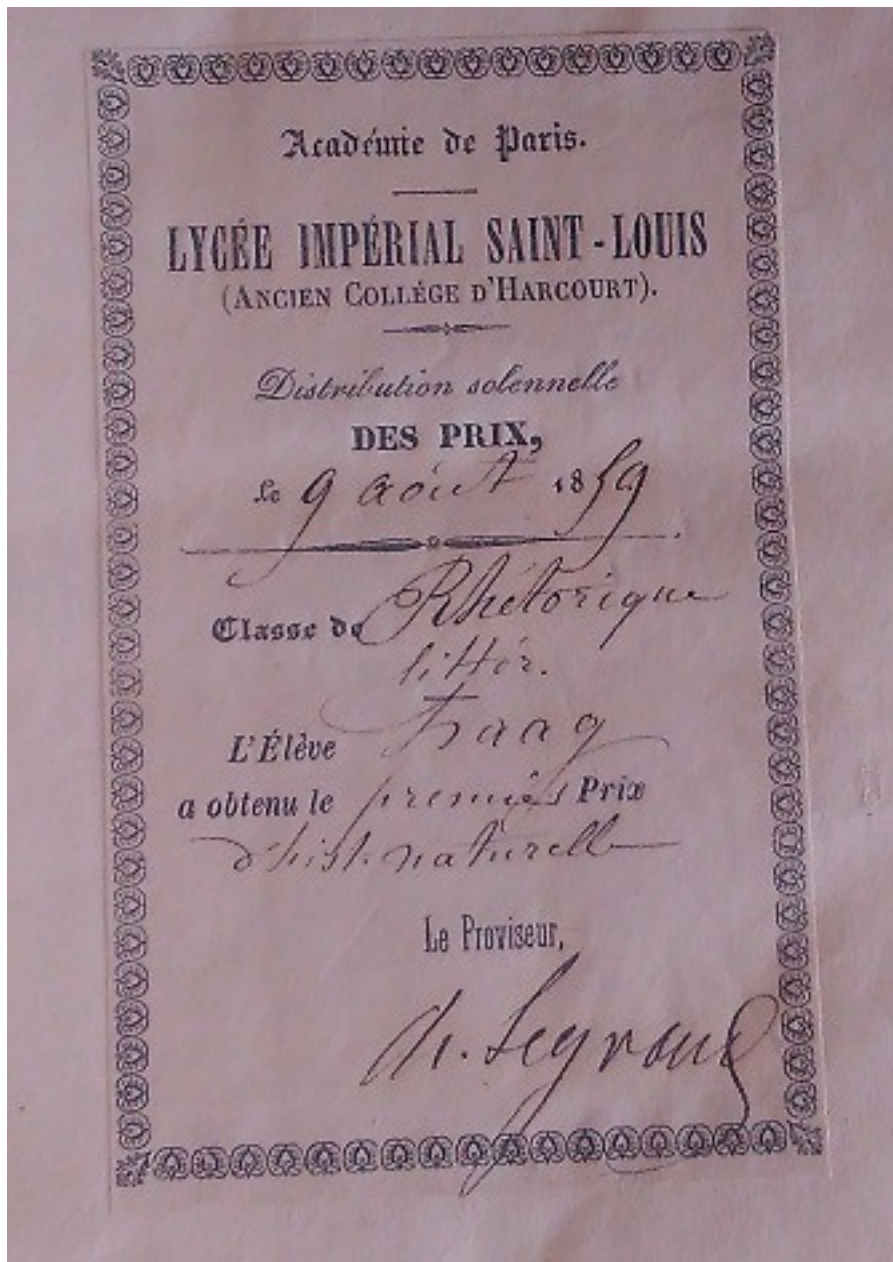 Académie de Paris.
LYCÉE IMPÉRIAL SAINT-LOUIS
(ANCIEN COLLÉGE D'HARCOURT).
Distribution solennelle
DES PRIX,
le 9 août 1859
Classe de Rhétorique
littér.
L'Élève Haag
a obtenu le premier Prix
d'hist. naturelle
Le Proviseur,
Legrand